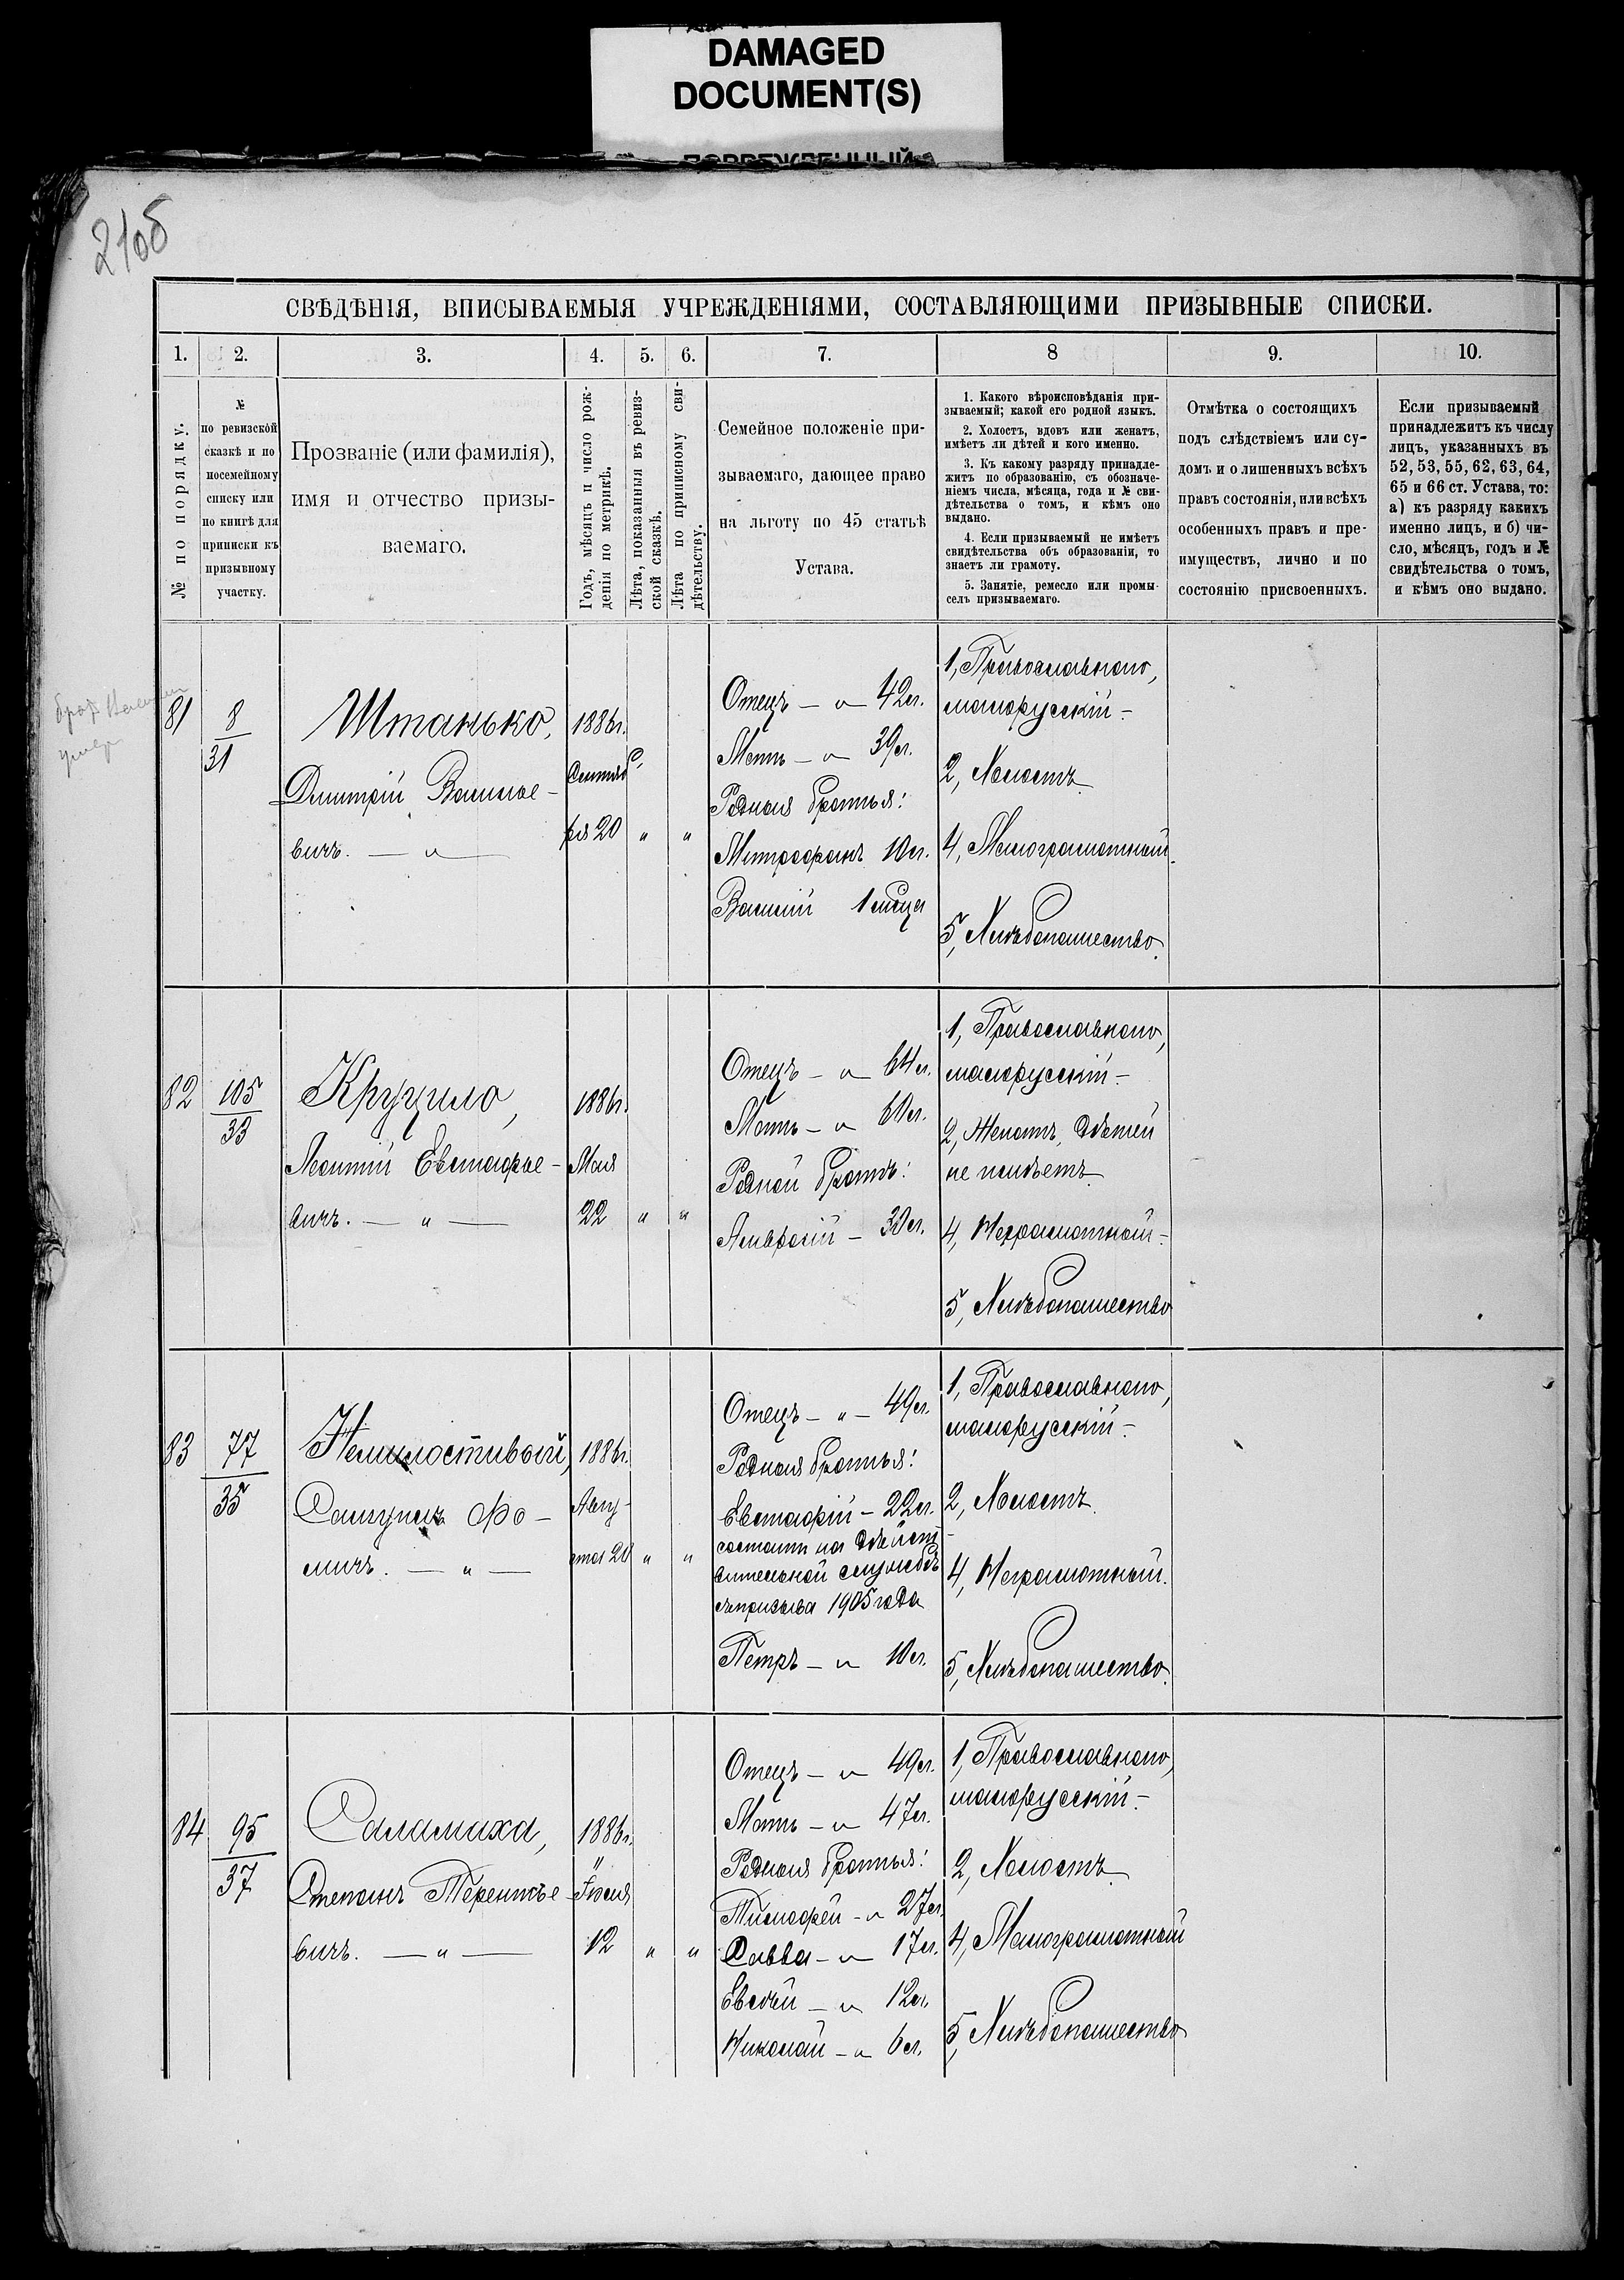 DAMAGED
DOCUMENT(S)
210б
СВѢДѢНІЯ, ВПИСЫВАЕМЫЯ УЧРЕЖДЕНІЯМИ, СОСТАВЛЯЮЩИМИ ПРИЗЫВНЫЕ СПИСКИ.
1. 2. 3. 4. 5. 6. 7. 8 9. 10.
№ по порядку.
№
по ревизской
сказкѣ и по
посемейному
списку или
по книгѣ для
приписки къ
призывному
участку.
Прозваніе (или фамилія),
имя и отчество призы-
ваемаго.
Годъ, мѣсяцъ и число рож-
денія по метрикѣ.
Лѣта, показанныя въ ревиз-
ской сказкѣ.
Лѣта по приписному сви-
дѣтельству.
Семейное положеніе при-
зываемаго, дающее право
на льготу по 45 статьѣ
Устава.
1. Какого вѣроисповѣданія при-
зываемый; какой его родной языкъ.
2. Холостъ, вдовъ или женатъ,
имѣетъ ли дѣтей и кого именно.
3. Къ какому разряду принадле-
житъ по образованію, съ обозначе-
ніемъ числа, мѣсяца, года и № сви-
дѣтельства о томъ, и кѣмъ оно
выдано.
4. Если призываемый не имѣетъ
свидѣтельства объ образованіи, то
знаетъ ли грамоту.
5. Занятіе, ремесло или промы-
селъ призываемаго.
Отмѣтка о состоящихъ
подъ слѣдствіемъ или су-
домъ и о лишенныхъ всѣхъ
правъ состоянія, или всѣхъ
особенныхъ правъ и пре-
имуществъ, лично и по
состоянію присвоенныхъ.
Если призываемый
принадлежитъ къ числу
лицъ, указанныхъ въ
52, 53, 55, 62, 63, 64,
65 и 66 ст. Устава, то:
а) къ разряду какихъ
именно лицъ, и б) чи-
сло, мѣсяцъ, годъ и №
свидѣтельства о томъ,
и кѣмъ оно выдано.
брат Васил
умер
81
8
31
Штанько,
Дмитрій Василье-
вичъ. — „ —
1886г.
Сентяб
ря 20 „ „
Отецъ — „ 42л.
Мать — „ 39л.
Родныя братья:
Митрофанъ 10л.
Василій 1 мѣсяц
1, Православнаго,
малорусскій —
2, Холостъ
4, Малограмотный.
5, Хлѣбопашество.
82
105
33
Круцило,
Леонтій Евстафье-
вичъ. — „ —
1886г.
Мая
22 „ „
Отецъ — „ 64л.
Мать — „ 60л.
Родной братъ:
Амвросій — 30л.
1, Православнаго,
малорусскій —
2, Женатъ, дѣтей
не имѣетъ.
4, Неграмотный —
5, Хлѣбопашество
83
77
35
Немилостивый,
Самуилъ Фо-
мичъ. — „ —
1886г.
Авгу-
ста 20 „ „
Отецъ — „ — 49л.
Родныя братья:
Евстафій — 22л.
состоитъ на дѣйст-
вительной службѣ
съ призыва 1905 года
Петръ — „ 10л.
1, Православнаго,
малорусскій —
2, Холостъ.
4, Неграмотный.
5, Хлѣбопашество.
84
95
37
Саламаха,
Степанъ Терентье-
вичъ. — „ —
1886г.
Іюля
12 „ „
Отецъ — „ 49л.
Мать — „ 47л.
Родныя братья:
Тимофей — „ 27л.
Савва — „ 17л.
Евсѣй — „ 12л.
Николай — „ 6л.
1, Православнаго,
малорусскій —
2, Холостъ
4, Малограмотный
5, Хлѣбопашество